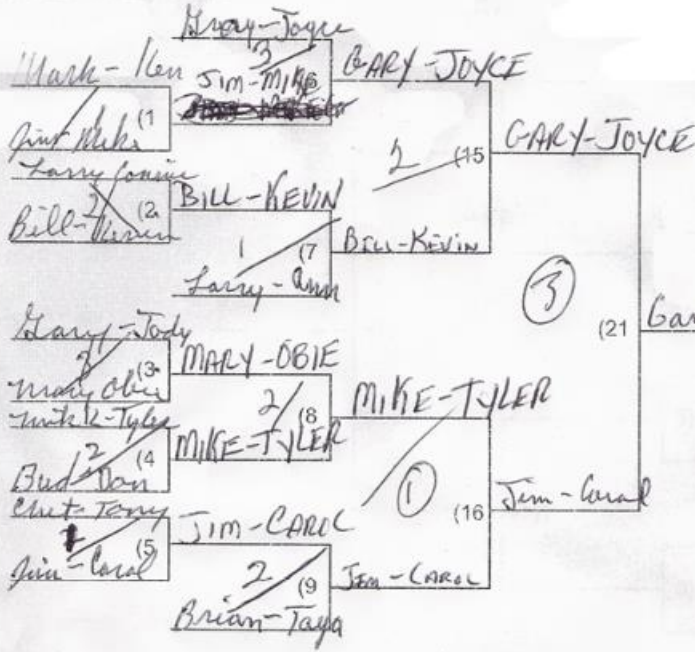 Gary-Joyce
Mark-Ken
3
JIM-MIKE
GARY-JOYCE
(1
Jim Mike
Larry Connie
2
(15
GARY-JOYCE
2
(2
BILL-KEVIN
Bill-Kevin
1
(7
BILL-KEVIN
Larry-Ann
3
(21
Gar
Gary-Jody
3
(3
MARY-OBIE
Mary Obie
2
(8
MIKE-TYLER
Mike-Tyler
2
(4
MIKE-TYLER
Bud-Don
1
(16
Jim-Carol
Chet-Tony
(5
JIM-CAROL
Jim-Carol
2
(9
JIM-CAROL
Brian-Taya